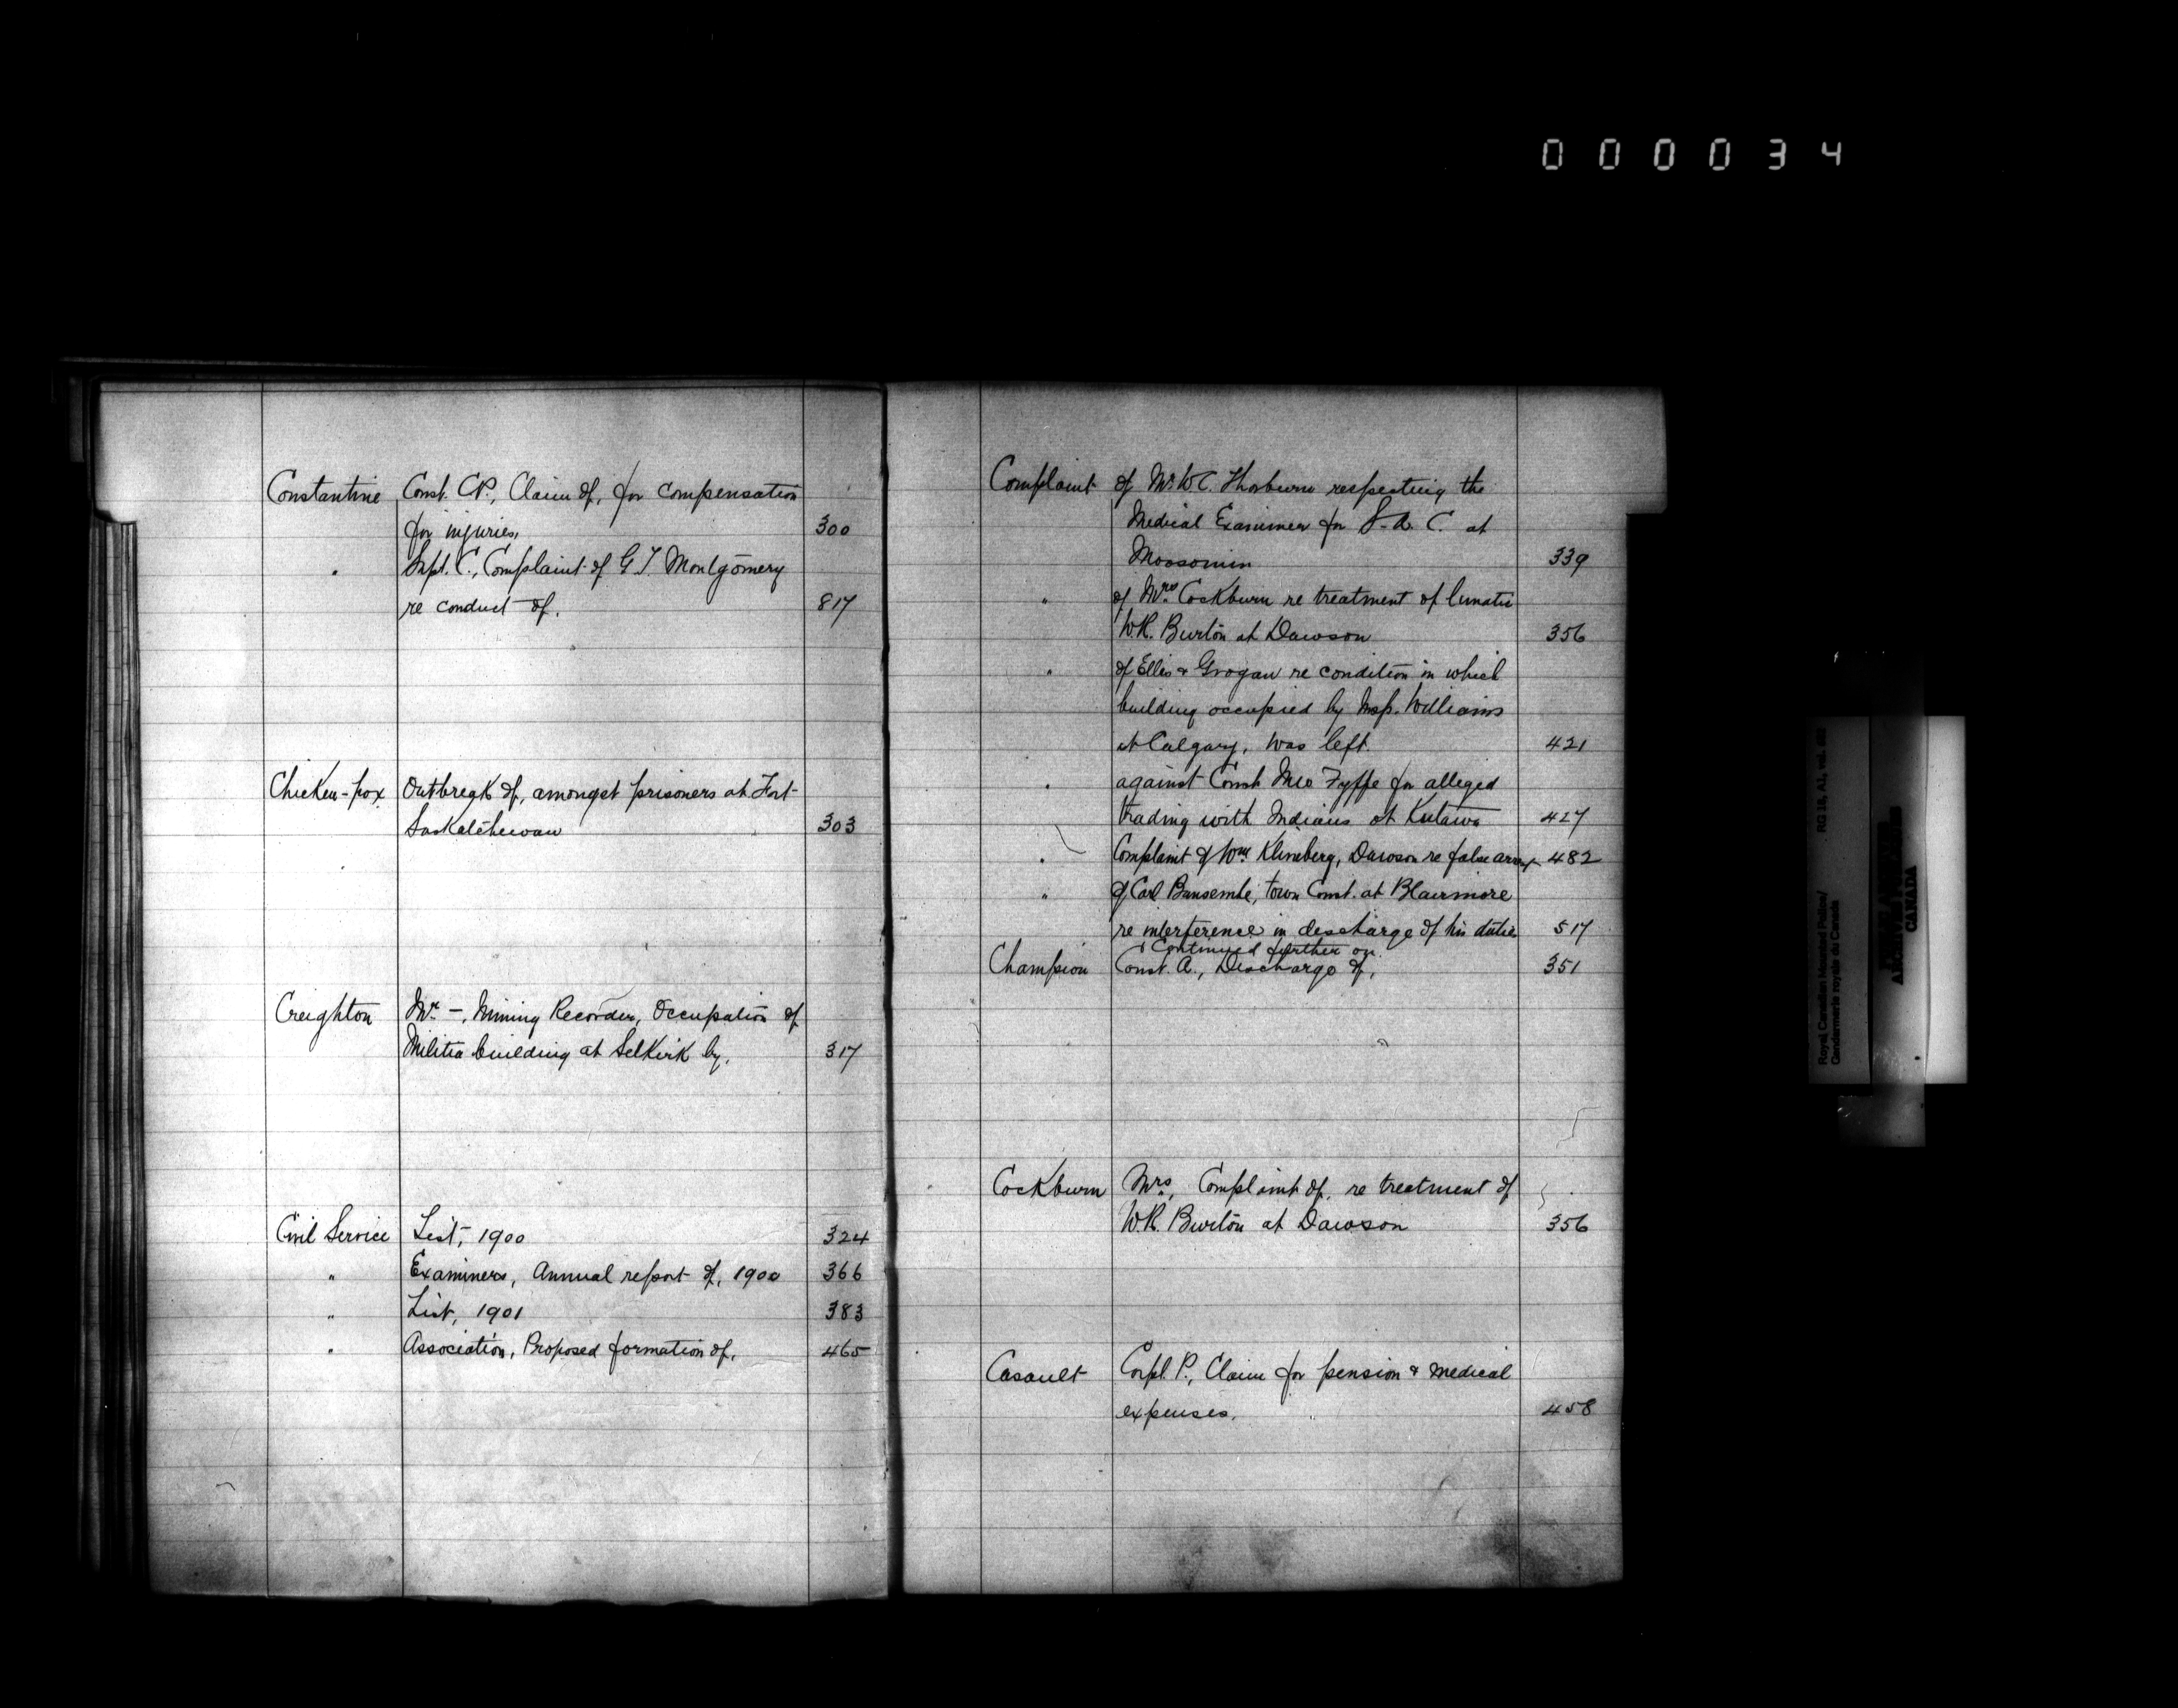 000034
Constantine Const. C.P., Claim of, for compensation
for injuries, 300
" Supt. C., Complaint of G. T. Montgomery
re conduct of. 817
Chicken-pox Outbreak of, amongst prisoners at Fort
Saskatchewan 303
Creighton Mr. -, Mining Recorder, Occupation of
Militia building at Selkirk by, 317
Civil Service List, 1900 324
" Examiners, Annual report of, 1900 366
" List, 1901 383
" Association, Proposed formation of, 465
Complaint of Mr. W.C. Thorburn respecting the
Medical Examiner for S.A.C. at
Moosomin 339
" of Mrs. Cockburn re treatment of lunatic
W.R. Burton at Dawson 356
" of Ellis & Grogan re condition in which
building occupied by Insp. Williams
at Calgary, was left. 421
" against Const. Fyffe for alleged
trading with Indians at Kutawa 427
" Complaint of Wm Klineberg, Dawson re false arrest 482
" of Carl Bansembe, town Const. at Blairmore
re interference in discharge of his duties 517
Continued further on.
Champion Const. A., Discharge of, 351
Cockburn Mrs., Complaint of, re treatment of
W.R. Burton at Dawson 356
Casault Corpl. P., Claim for pension & medical
expenses. 458
Royal Canadian Mounted Police/ RG 18, A1, vol.
Gendarmerie royale du Canada
CANADA